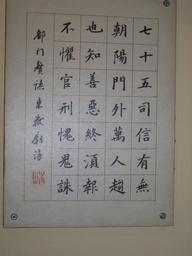 七十五司信有無
朝陽門外萬人趨
也知善惡終湏報
不懼官刑愧鬼誅
都門贅語東嶽廟詩